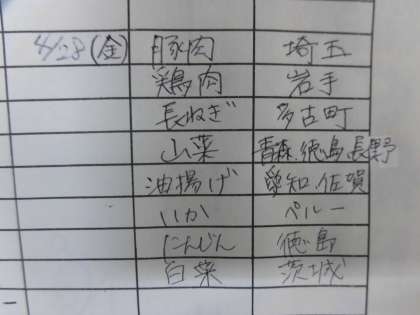 4/28(金) 豚肉 埼玉
鶏肉 岩手
長ねぎ 多古町
山菜 青森、徳島、長野
油揚げ 愛知、佐賀
いか ペルー
にんじん 徳島
白菜 茨城